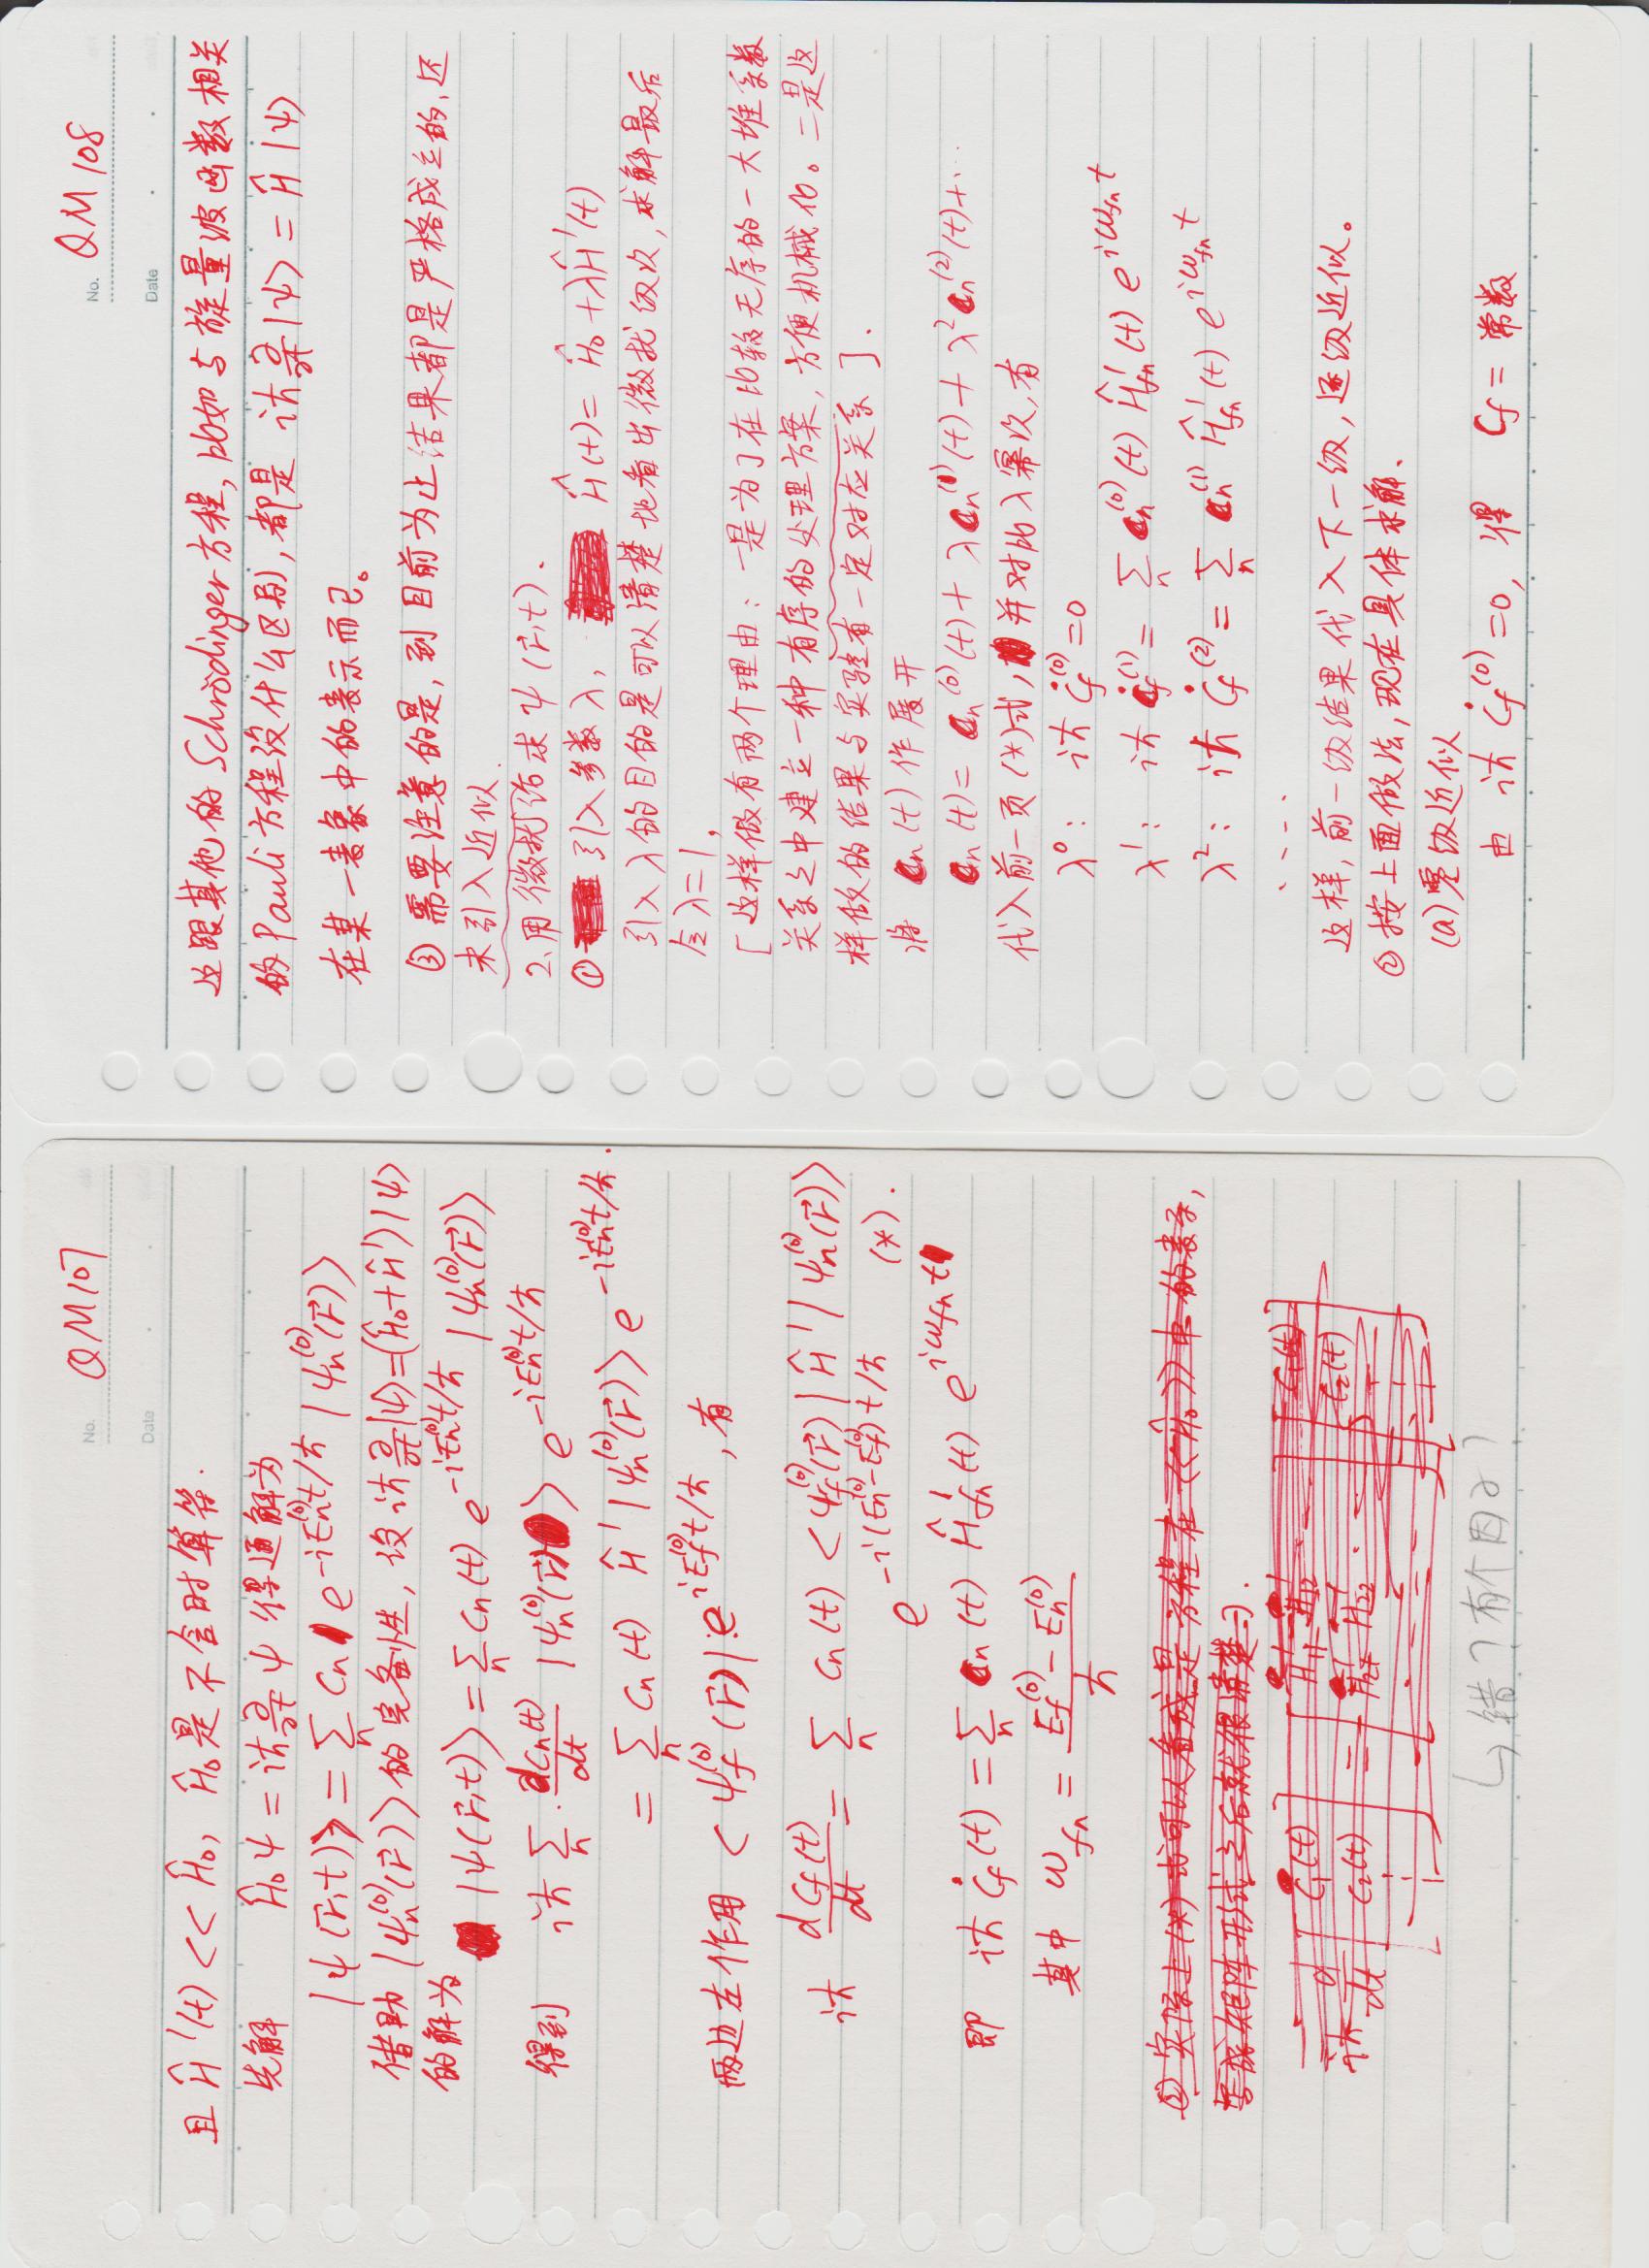 No. QM107
Date
且 Ĥ'(t) << Ĥ₀, Ĥ₀是不含时算符.
先解 Ĥ₀ψ = iħ ∂/∂t ψ 得通解为
|ψ(r⃗,t)⟩ = Σ_n Cn e^{-iEn^{(0)}t/ħ} |ψn^{(0)}(r⃗)⟩
借助 |ψn^{(0)}(r⃗)⟩的完备性, 设 iħ ∂/∂t|ψ⟩=(Ĥ₀+Ĥ')|ψ⟩
的解为
|ψ(r⃗,t)⟩ = Σ_n Cn(t) e^{-iEn^{(0)}t/ħ} |ψn^{(0)}(r⃗)⟩
得到 iħ Σ_n dCn(t)/dt |ψn^{(0)}(r⃗)⟩ e^{-iEn^{(0)}t/ħ}
= Σ_n Cn(t) Ĥ'|ψn^{(0)}(r⃗)⟩ e^{-iEn^{(0)}t/ħ}.
两边左作用 <ψf^{(0)}(r⃗)| e^{iEf^{(0)}t/ħ}, 有
iħ dCf(t)/dt = Σ_n Cn(t) <ψf^{(0)}(r⃗)|Ĥ'|ψn^{(0)}(r⃗)⟩
e^{-i(En^{(0)}-Ef^{(0)})t/ħ} (*).
即 iħ Ċf(t) = Σ_n Cn(t) Ĥ'fn(t) e^{iωfn t}
其中 ωfn = (Ef^{(0)} - En^{(0)})/ħ
② 实际上(*)式可以看成是方程在<<Ĥ₀>>中的表示,
写成矩阵形式之后就很清楚了.
iħ d/dt [C₁(t) C₂(t) ⋮] = [H'₁₁ H'₁₂ ⋯ H'₂₁ H'₂₂ ⋯] [C₁(t) C₂(t) ⋮]
↳ 错? 有个因子?
No. QM 108
Date
这跟其他的 Schrödinger 方程, 比如与旋量波函数相关
的 Pauli 方程没什么区别, 都是 iħ ∂/∂t|ψ⟩ = Ĥ|ψ⟩
在某一表象中的表示而已。
③ 需要注意的是, 到目前为止结果都是严格成立的, 还
未引入近似.
2. 用微扰论求 ψ(r⃗,t).
① 引入参数λ, Ĥ(t)= Ĥ₀+λĤ'(t)
引入λ的目的是可以清楚地看出微扰级次, 求解最后
令λ=1,
[这样做有两个理由: 一是为了在比较无序的一大堆系数
关系之中建立一种有序的处理方案, 方便机械化。二是这
样做的结果与实验有一定对应关系].
将 Cn(t) 作展开
Cn(t)= Cn^{(0)}(t)+ λCn^{(1)}(t)+ λ²Cn^{(2)}(t)+⋯
代入前一页(*)式, 并对比λ幂次, 有
λ⁰: iħ Ċf^{(0)}=0
λ¹: iħ Ċf^{(1)}= Σ_n Cn^{(0)}(t) Ĥ'fn(t) e^{iωfn t}
λ²: iħ Ċf^{(2)}= Σ_n Cn^{(1)} Ĥ'fn(t) e^{iωfn t}
....
这样, 前一级结果代入下一级, 逐级近似。
② 按上面做法, 现在具体求解.
(a) 零级近似
由 iħ Ċf^{(0)}=0, 得 Cf = 常数